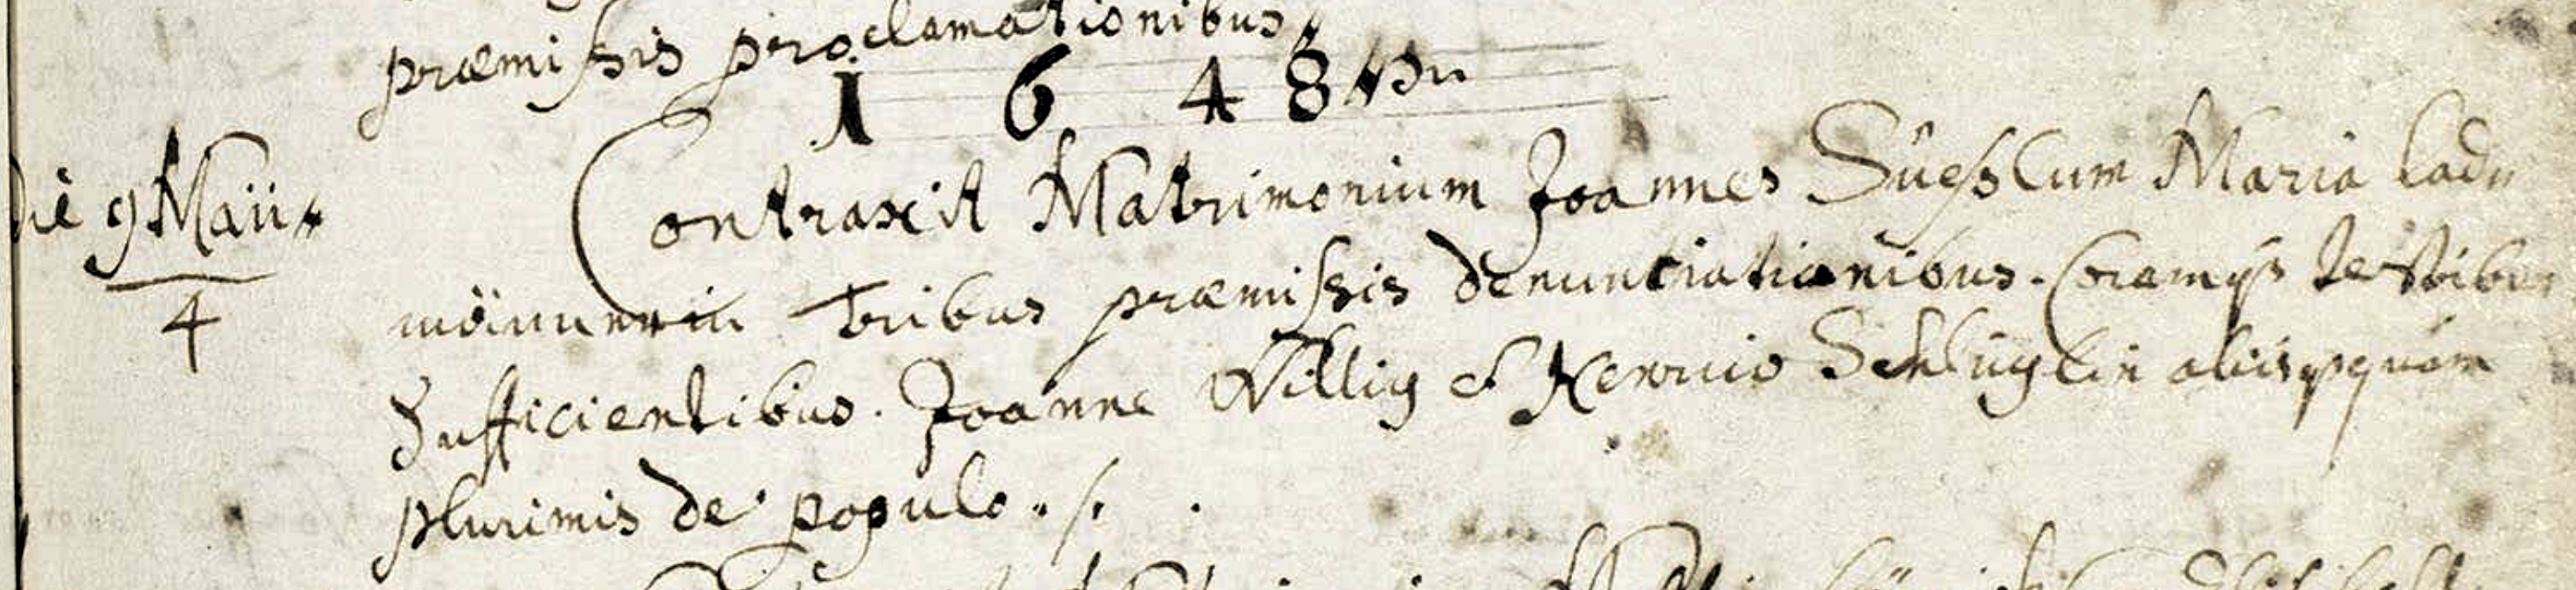 præmissis proclamationibus
1 6 4 8
die 9 Maii
4
Contraxit Matrimonium Joannes Süess Cum Maria
tribus præmissis denuntiationibus. Coram ijs testibus
Sufficientibus. Joanne Willig & Schluglin aliisq quam
plurimis de populo ./.